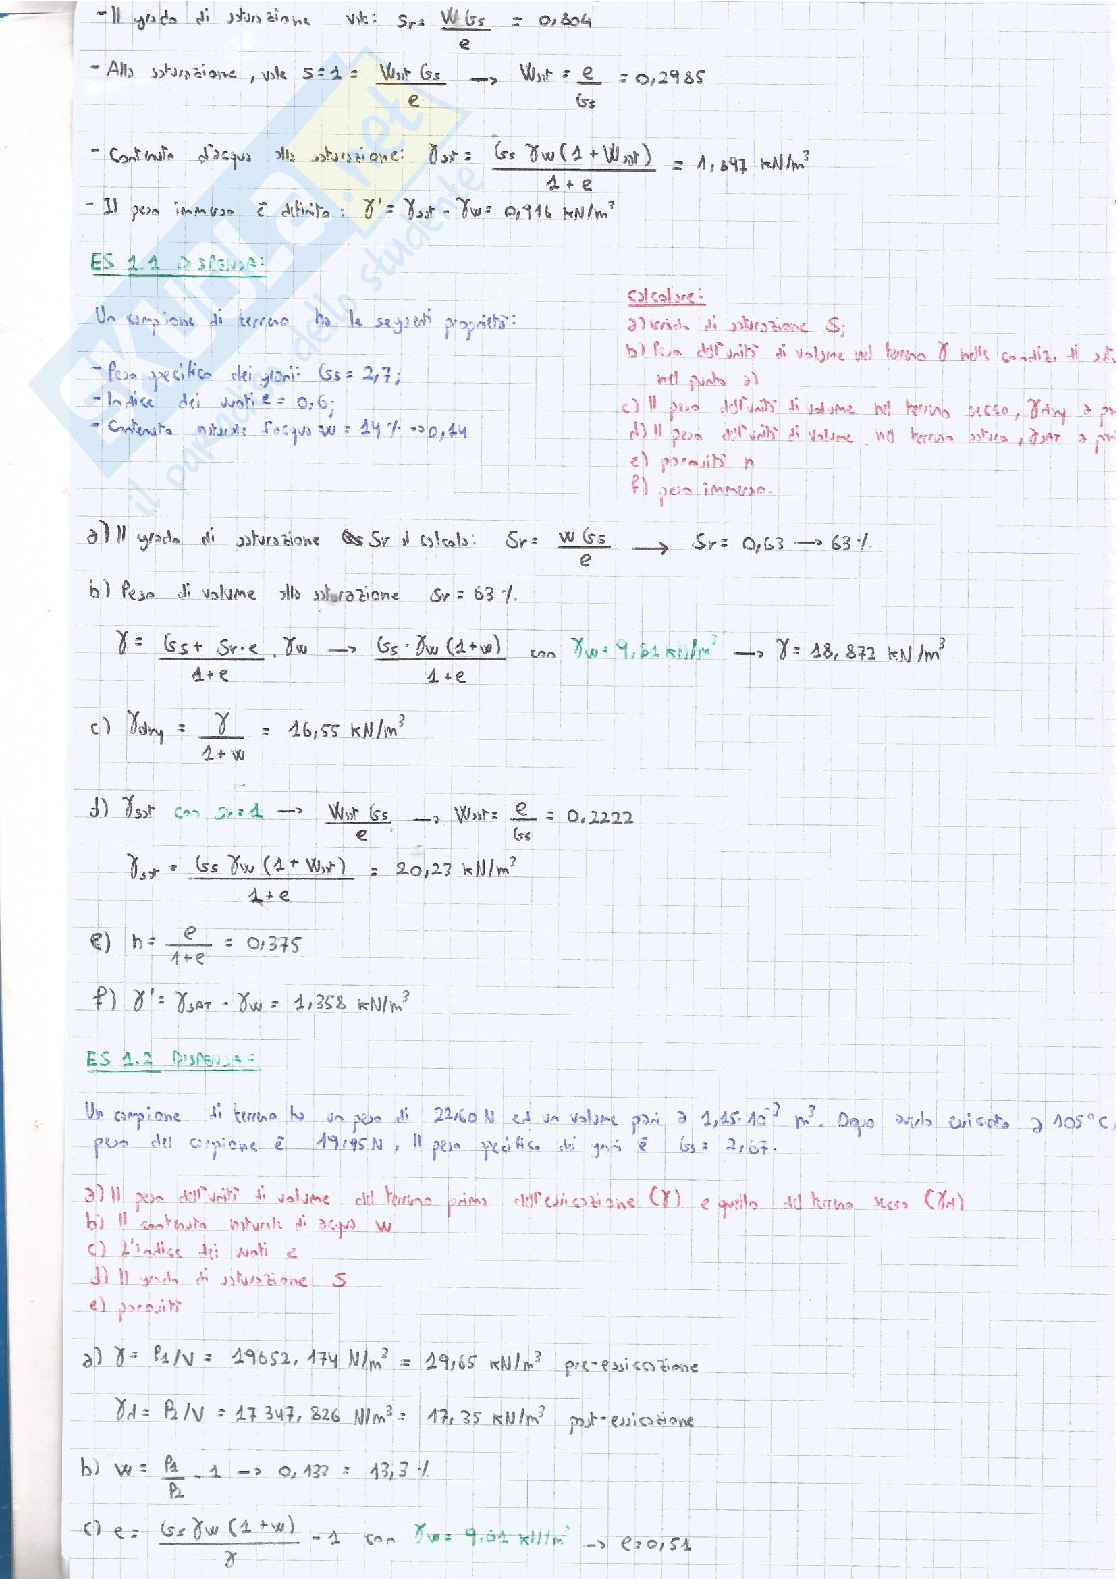 - Il grado di saturazione vale: Sr = W Gs / e = 0,804
- Alla saturazione, vale S=1 = Wsat Gs / e → Wsat = e / Gs = 0,2985
- Contenuto d'acqua alla saturazione: γsat = Gs γw (1 + Wsat) / 1 + e = 1,897 kN/m³
- Il peso immerso è definito: γ' = γsat - γw = 0,916 kN/m³
ES 1.1 DISPENSA:
Un campione di terreno ha le seguenti proprietà:
- Peso specifico dei grani: Gs = 2,7;
- Indice dei vuoti e = 0,6;
- Contenuto naturale d'acqua w = 14 % → 0,14
Calcolare:
a) Grado di saturazione S;
b) Peso dell'unità di volume nel terreno γ nelle condiz. di
nel punto a)
c) Il peso dell'unità di volume nel terreno secco, γdry
d) Il peso dell'unità di volume nel terreno saturo, γSAT
e) porosità n
f) peso immerso.
a) Il grado di saturazione Sr si calcola: Sr = w Gs / e → Sr = 0,63 → 63 %
b) Peso di volume alla saturazione Sr = 63 %.
γ = Gs + Sr·e / 1+e · γw → Gs · γw (1+w) / 1+e con γw = 9,81 kN/m³ → γ = 18,872 kN/m³
c) γdry = γ / 1+w = 16,55 kN/m³
d) γsat con Sr=1 → Wsat Gs / e → Wsat = e / Gs = 0,2222
γsat = Gs γw (1 + Wsat) / 1+e = 20,23 kN/m³
e) n = e / 1+e = 0,375
f) γ' = γSAT - γw = 1,358 kN/m³
ES 1.2 DISPENSA:
Un campione di terreno ha un peso di 22,60 N ed un volume pari a 1,15·10⁻³ m³. Dopo averlo essiccato a 105°C,
peso del campione è 19,95 N, Il peso specifico dei grani è Gs = 2,67.
a) Il peso dell'unità di volume del terreno prima dell'essicazione (γ) e quello del terreno secco (γd)
b) Il contenuto naturale di acqua w
c) L'indice dei vuoti e
d) Il grado di saturazione S
e) porosità
a) γ = P1/V = 19652,174 N/m³ = 19,65 kN/m³ pre-essiccazione
γd = P2/V = 17347,826 N/m³ = 17,35 kN/m³ post-essicazione
b) w = P1 / P2 - 1 → 0,133 = 13,3 %
c) e = Gs γw (1+w) / γ - 1 con γw = 9,81 kN/m³ → e = 0,51
SKUOLA.net
il paradiso dello studente